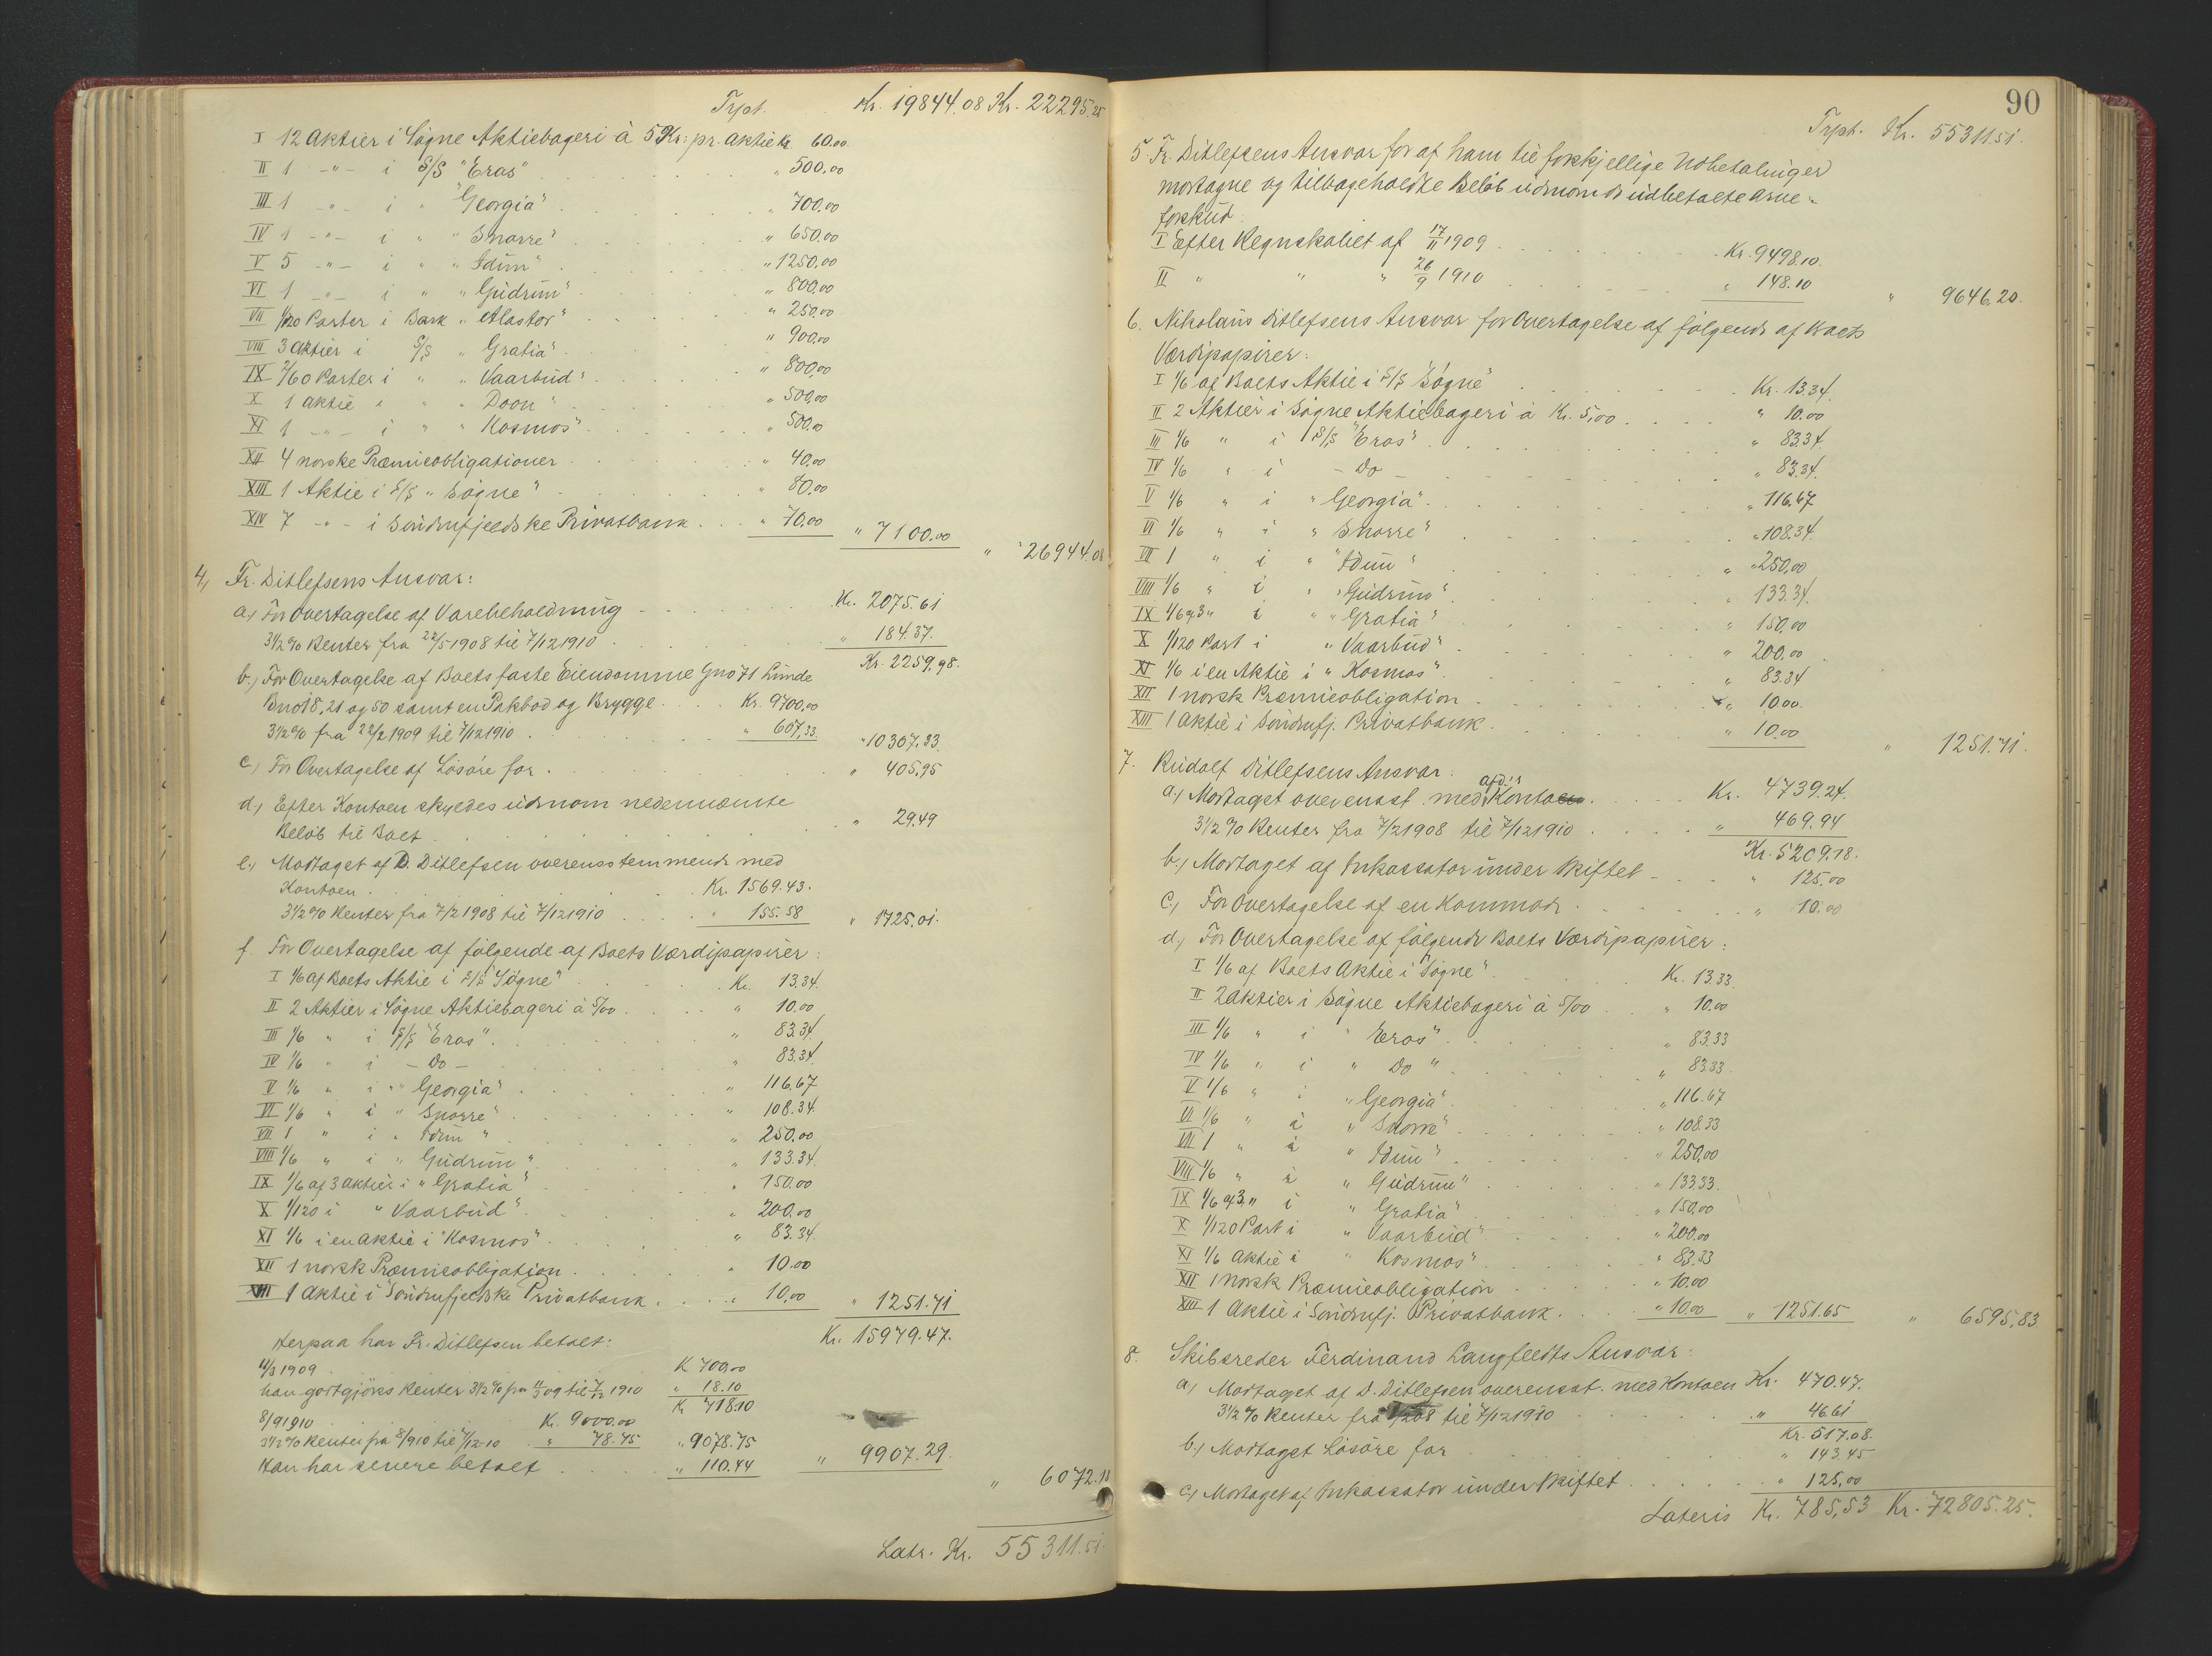 Trpt. Kr. 19844.08 Kr. 22295.25
I 12 Aktier i Søgne Aktiebageri à 5 Kr: pr. Aktie Kr 60.00
II 1 -"- i S/S "Eros" " 500.00
III 1 -"- i " "Georgia" " 700.00
IV 1 -"- i " "Snorre" " 650.00
V 5 -"- i " "Idun" " 1250.00
VI 1 -"- i " "Gudrun" " 800.00
VII 1/120 Parter i Bark "Alastor" " 250.00
VIII 3 Aktier i S/S "Gratia" " 900.00
IX 2/60 Parter i " "Vaarbud" " 800.00
X 1 Aktie i " "Doon" " 500.00
XI 1 -"- i " "Kosmos" " 500.00
XII 4 norske Præmieobligationer " 40.00
XIII 1 Aktie i S/S "Søgne" " 80.00
XIV 7 -"- i Søndenfjeldske Privatbank " 70.00 " 7100.00 " 26944.08
4, Fr. Ditlefsens Ansvar:
a, For Overtagelse af Varebeholdning Kr. 2075.61
3 1/2 % Renter fra 22/5 1908 til 7/12 1910 " 184.37.
Kr. 2259.98.
b., For Overtagelse af Boets faste Eiendomme Gno 71 Lunde
Bno 18, 21 og 50 samt en Pakbod og Brygge Kr. 9700.00
3 1/2 % fra 22/2 1909 til 7/12 1910 " 607,33. " 10307.33
c, For Overtagelse af Løsøre for " 405.95
d, Efter Kontoen skyldes udenom nedennævnte
Beløb til Boet " 29.49
e., Modtaget af D. Ditlefsen overensstemmende med
Kontoen Kr. 1569.43.
3 1/2 % Renter fra 7/2 1908 til 7/12 1910 " 155.58 " 1725.01.
f. For Overtagelse af følgende af Boets Værdipapirer:
I 1/6 af Boets Aktie i S/S "Søgne" Kr. 13.34.
II 2 Aktier i Søgne Aktiebageri à 5/00 " 10.00
III 1/6 " i S/S "Eros" " 83.34
IV 1/6 " i - Do - " 83.34.
V 1/6 " i " "Georgia" " 116.67
VI 1/6 " i " Snorre" " 108.34
VII 1 " i " Idun " " 250.00
VIII 1/6 " i " Gudrun " " 133.34.
IX 1/6 af 3 Aktier i " Gratia " " 150.00
X 1/120 i " Vaarbud" " 200.00
XI 1/6 i en Aktie i "Kosmos" " 83.34.
XII 1 norsk Præmieobligation " 10.00
XIII 1 Aktie i Søndenfjeldske Privatbank " 10.00 " 1251.71
Kr. 15979.47.
Herpaa har Fr. Ditlefsen betalt:
11/3 1909 K 700.00
han godtgjøres Renter 3 1/2 % fra 11/3 09 til 7/12 1910 " 18.10
Kr 718.10
8/9 1910 Kr. 9000.00
3 1/2 % Renter fra 8/9 10 til 7/12-10 " 78.75 " 9078.75
Han har senere betalt " 110.44 " 9907.29. " 6072.18
Latr. Kr. 55311.51.
90
Trpt. Kr. 55311.51.
5. Fr. Ditlefsens Ansvar for af ham til forskjellige Udbetalinger
modtagne og tilbageholdte Beløb udenom de udbetalte Arve-
forskud
I Efter Regnskabet af 17/11 1909 Kr. 9498.10.
II " " " 26/9 1910 " 148.10 " 9646.20.
6. Nikolaus Ditlefsens Ansvar for Overtagelse af følgende af Boets
Værdipapirer:
I 1/6 af Boets Aktie i S/S "Søgne" Kr. 13.34.
II 2 Aktier i Søgne Aktiebageri à Kr. 5,00 " 10.00
III 1/6 " i S/S "Eros" " 83.34
IV 1/6 " i - Do - " 83.34.
V 1/6 " i "Georgia" " 116.67
VI 1/6 " i " Snorre" " 108.34.
VII 1 " i " "Idun " " 250.00
VIII 1/6 " i " "Gudrun" " 133.34.
IX 1/6 af 3 " i " "Gratia" " 150.00
X 1/120 Part i "Vaarbud" " 200.00
XI 1/6 i en Aktie i " Kosmos" " 83.34
XII 1 norsk Præmieobligation " 10.00.
XIII 1 Aktie i Søndenfj. Privatbank " 10.00 " 1251.71.
7. Rudolf Ditlefsens Ansvar:
a., Modtaget overensst. med Kontoen Kr. 4739.24.
3 1/2 % Renter fra 7/2 1908 til 7/12 1910 " 469.94
Kr. 5209.18.
b., Modtaget af Inkassator under Skiftet " 125.00
c., For Overtagelse af en Kommode " 10.00
d, For Overtagelse af følgende Boets Værdipapirer:
I 1/6 af Boets Aktie i "Søgne" Kr. 13.33.
II 2 Aktier i Søgne Aktiebageri à 5/00 " 10.00
III 1/6 " i " Eros" " 83.33
IV 1/6 " i " Do " " 83.33
V 1/6 " i "Georgia" " 116.67
VI 1/6 " i " Snorre" " 108.33
VII 1 " i " Idun " " 250.00
VIII 1/6 " i " Gudrun" " 133.33.
IX 1/6 af 3 " i " Gratia" " 150.00
X 1/120 Part i " Vaarbud" " 200.00
XI 1/6 Aktie i " Kosmos" " 83.33
XII 1 norsk Præmieobligation " 10.00
XIII 1 Aktie i Søndenfj. Privatbank " 10.00 " 1251.65 " 6595.83
8. Skibsreder Ferdinand Langfeldts Ansvar:
a, Modtaget af D. Ditlefsen overensst. med Kontoen Kr. 470.47.
3 1/2 % Renter fra 7/2 08 til 7/12 1910 " 46.61
Kr. 517.08.
b., Modtaget Løsøre for " 143.45
c, Modtaget af Inkassator under Skiftet " 125.00
Lateris Kr. 785,53 Kr. 72805.25.